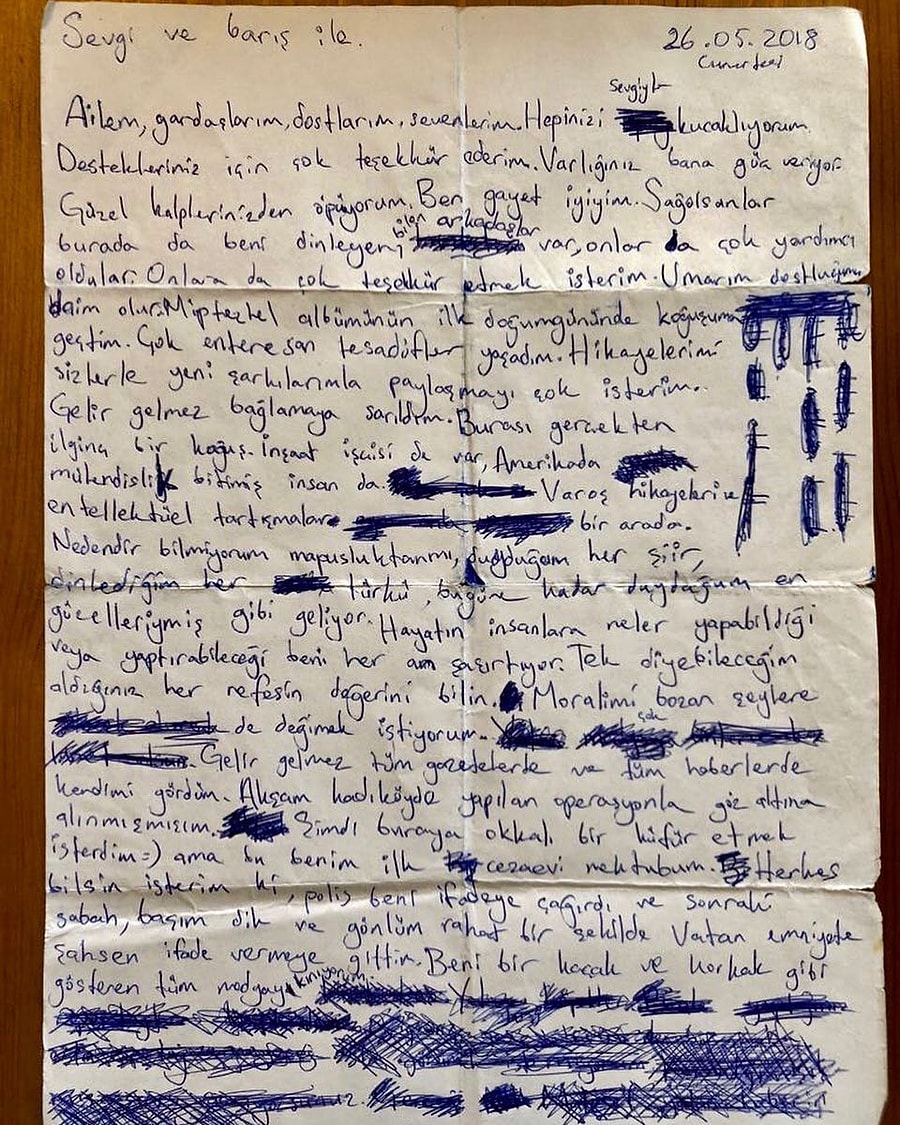 Sevgi ve barış ile.
26.05.2018
Cumartesi
Sevgiyle
Ailem, gardaşlarım, dostlarım, sevenlerim. Hepinizi kucaklıyorum.
Destekleriniz için çok teşekkür ederim. Varlığınız bana güç veriyor.
Güzel kalplerinizden öpüyorum. Ben gayet iyiyim. Sağolsunlar
bilen arkadaşlar
burada da beni dinleyen, var, onlar da çok yardımcı
oldular. Onlara da çok teşekkür etmek isterim. Umarım dostluğumuz
daim olur. Mipteztel albümünün ilk doğumgününde koğuşuma
geçtim. Çok enteresan tesadüfler yaşadım. Hikayelerimi
sizlerle yeni şarkılarımla paylaşmayı çok isterim.
Gelir gelmez bağlamaya sarıldım. Burası gerçekten
ilginç bir koğuş. İnşaat işçisi de var, Amerikada
mühendislik bitimiş insan da. Varoş hikayeleri ve
entellektüel tartışmalar bir arada.
Nedendir bilmiyorum mapusluktanmı, duyduğum her şiir,
dinlediğim her türkü, bugüne kadar duyduğum en
güzelleriymiş gibi geliyor. Hayatın insanlara neler yapabildiği
veya yaptırabileceği beni her an şaşırtıyor. Tek diyebileceğim
aldığınız her nefesin değerini bilin. Moralimi bozan şeylere
de değinmek istiyorum. çok
Gelir gelmez tüm gazetelerde ve tüm haberlerde
kendimi gördüm. Akşam kadıköyde yapılan operasyonla göz altına
alınmışmışım. Şimdi buraya okkalı bir küfür etmek
isterdim =) ama bu benim ilk cezaevi mektubum. Herkes
bilsin isterim ki, polis beni ifadeye çağırdı ve sonraki
sabah, başım dik ve gönlüm rahat bir şekilde Vatan emniyete
şahsen ifade vermeye gittim. Beni bir kaçak ve korkak gibi
gösteren tüm medyayı kınıyorum.